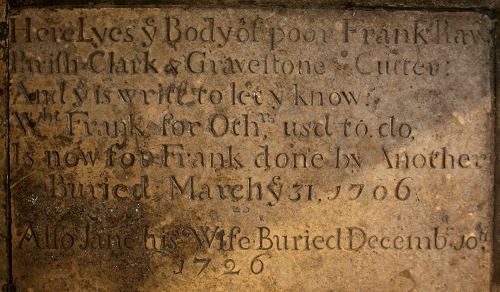 Here Lyes yͤ Body of poor Frank Raw
Parish Clark & Gravestone Cutter:
And yͭ is writt to let yͧ know:
Wͪͭ Frank for Othͬͫ us'd to do
Is now for Frank done by Another
Buried March yͤ 31, 1706
Also Jane his Wife Buried Decembͬ 10ͭͪ
1726